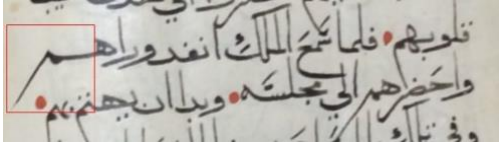 قلوبهم • فلما سَمعَ الملكُ انفد وراهم
واحَضَراهم الي مجلسَه • وبدا ان يهتم بهم •